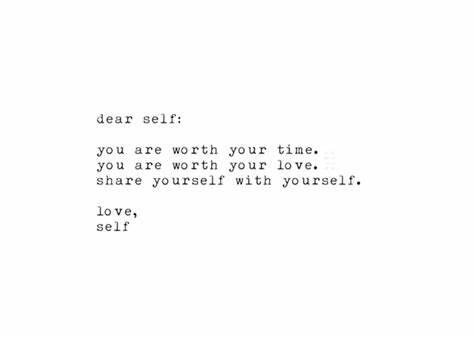 dear self:
you are worth your time.
you are worth your love.
share yourself with yourself.
love,
self